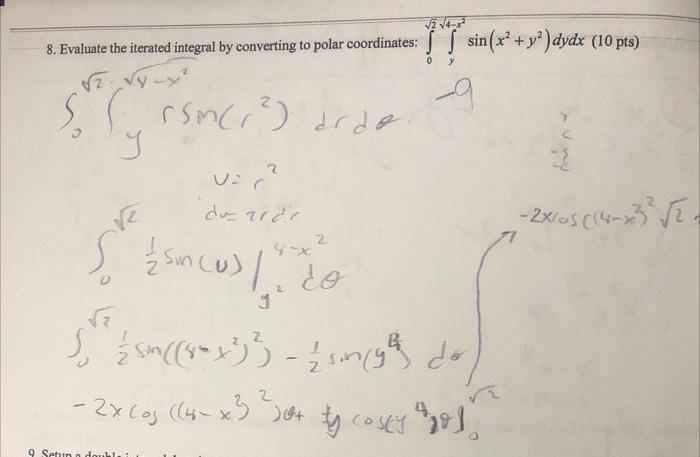 8. Evaluate the iterated integral by converting to polar coordinates: ∫₀^√2 ∫_y^√(4−x²) sin(x² + y²) dydx (10 pts)
∫₀^√2 ∫_y^√(4−x²) r sin(r²) dr dθ
-9
u = r²
du = 2rdr
∫₀^√2 ½ sin(u) |_{y²}^{4−x²} dθ
-2xcos((4-x²)² √2
∫₀^√2 ½ sin((4−x²)²) − ½ sin(y⁴) dθ
-2x cos((4−x²)²)θ + cos(y⁴)θ]₀^√2
9. Setup a double